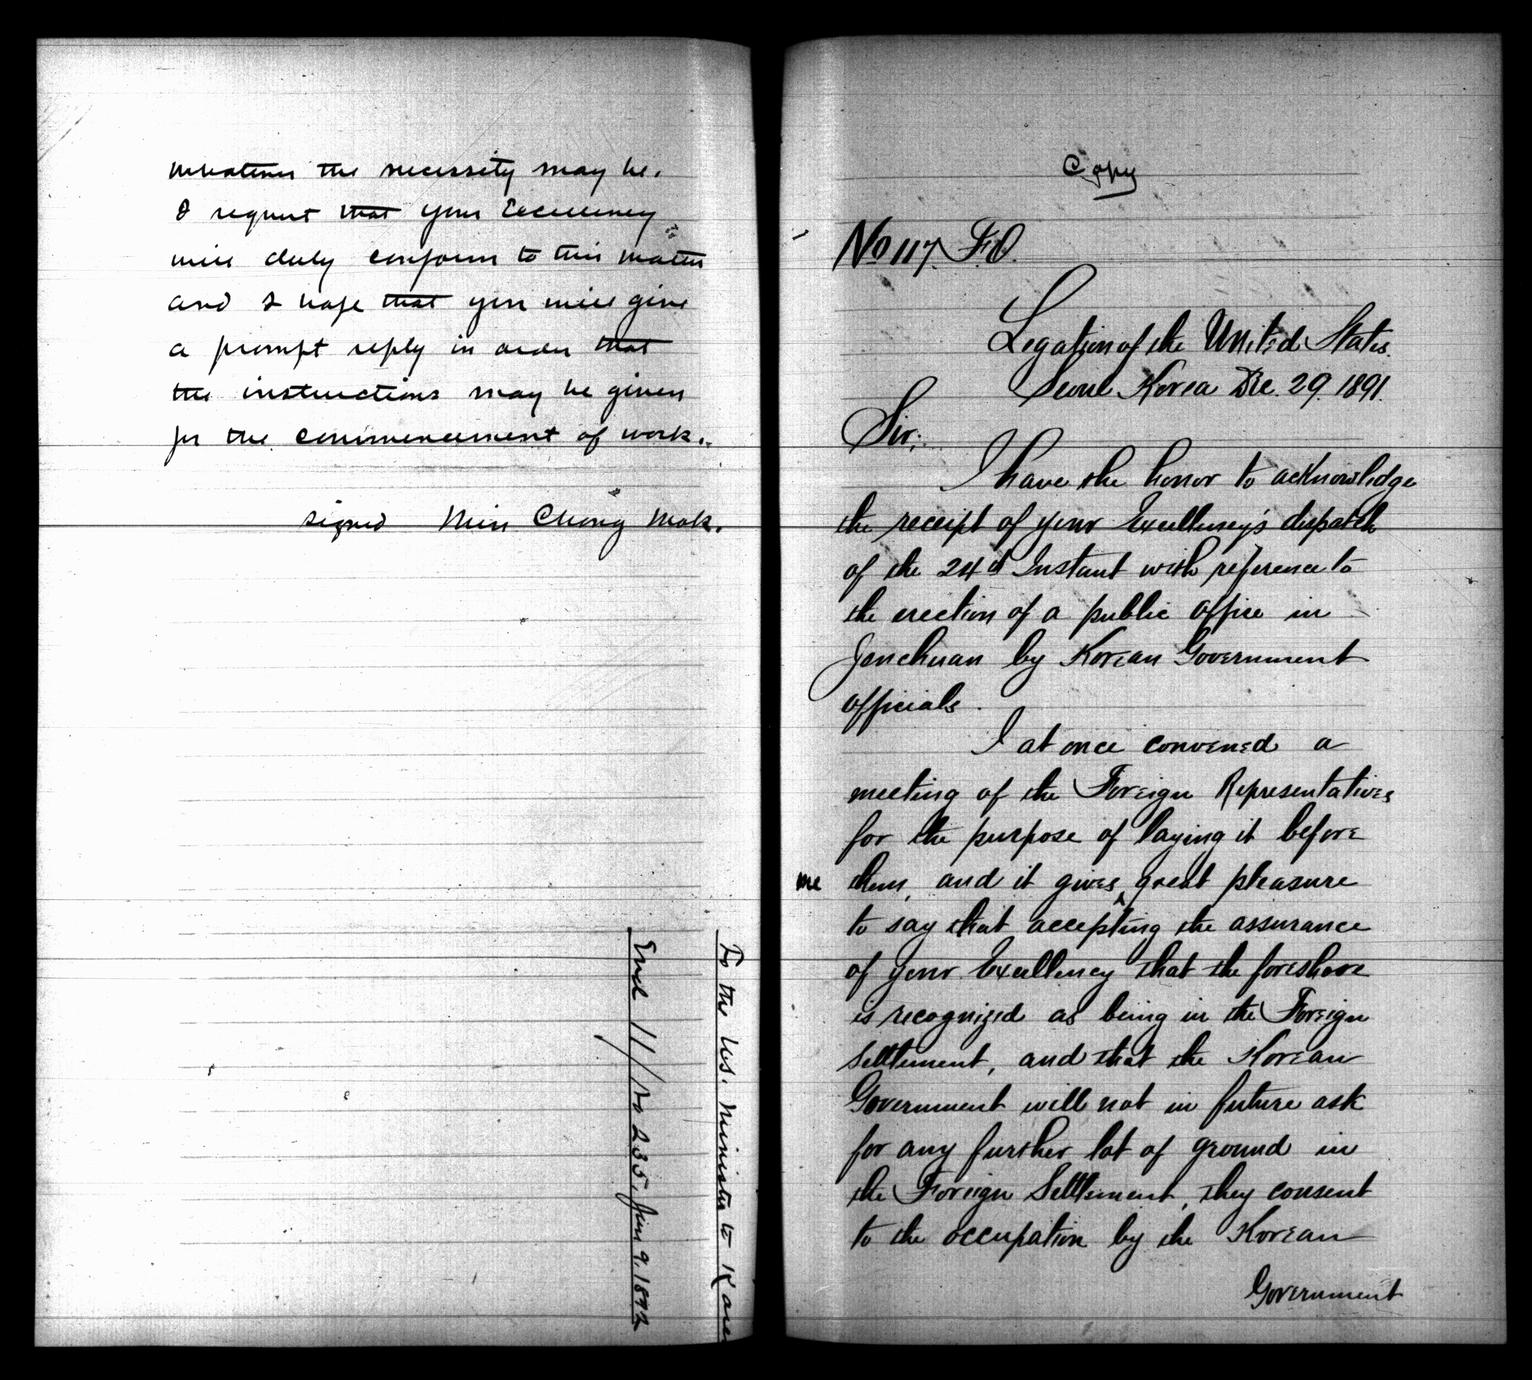 whatever the necessity may be.
I request that your Excellency
will duly conform to this matter
and I hope that you will give
a prompt reply in order that
the instructions may be given
for the commencement of work.
signed Min Chong Mok.
To the U.S. Minister to Korea
Encl 11/ No 235. Jan 9. 1892
Copy
No 117. F.O.
Legation of the United States.
Seoul Korea Dec. 29. 1891.
Sir:
I have the honor to acknowledge
the receipt of your Excellency's dispatch
of the 24th Instant with reference to
the erection of a public office in
Jenchuan by Korean Government
officials.
I at once convened a
meeting of the Foreign Representatives
for the purpose of laying it before
them, and it gives me great pleasure
to say that accepting the assurance
of your Excellency that the foreshore
is recognized as being in the Foreign
Settlement, and that the Korean
Government will not in future ask
for any further lot of ground in
the Foreign Settlement, they consent
to the occupation by the Korean
Government